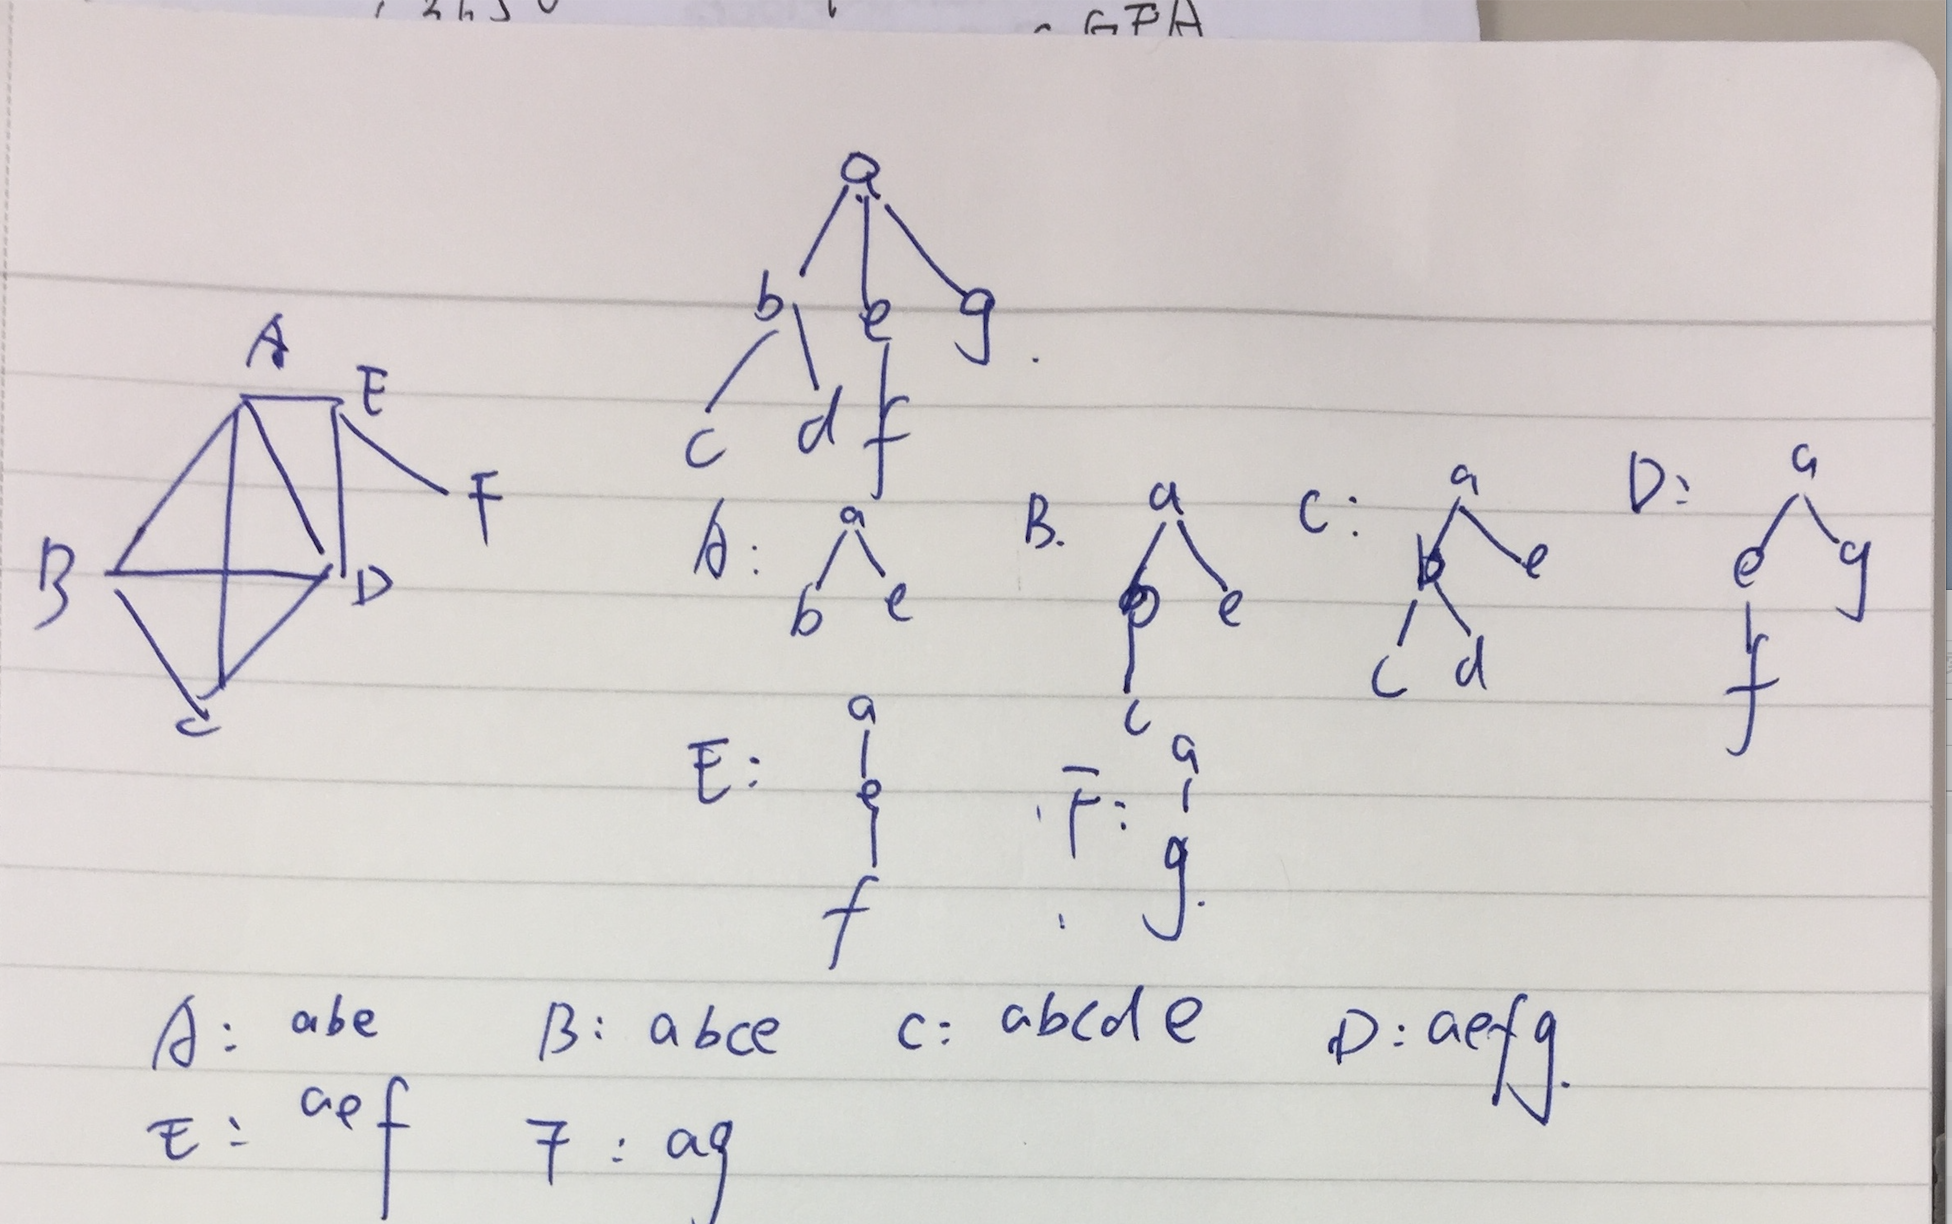 GPA
a
b e g.
c d f
A
E
F
B
D
C
A: a b e
B. a b e c
C: a b e c d
D: a e g f
E: a e f
F: a g.
A: abe B: abce C: abcde D: aefg.
E: aef F: ag